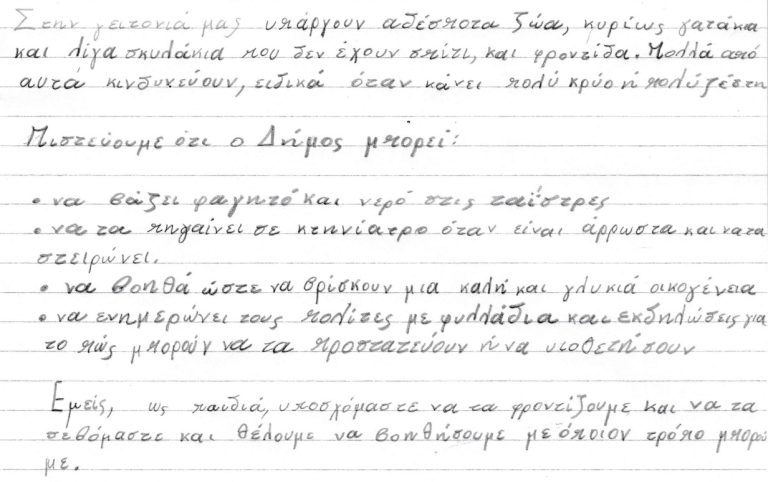 Στην γειτονιά μας υπάρχουν αδέσποτα ζώα, κυρίως γατάκια
και λίγα σκυλάκια που δεν έχουν σπίτι, και φροντίδα. Πολλά από
αυτά κινδυνεύουν, ειδικά όταν κάνει πολύ κρύο ή πολύ ζέστη
Πιστεύουμε ότι ο Δήμος μπορεί:
• να βάζει φαγητό και νερό στις ταΐστρες
• να τα πηγαίνει σε κτηνίατρο όταν είναι άρρωστα και να τα
στειρώνει.
• να βοηθά ώστε να βρίσκουν μια καλή και γλυκιά οικογένεια
• να ενημερώνει τους πολίτες με φυλλάδια και εκδηλώσεις για
το πώς μπορούν να τα προστατεύουν ή να υιοθετήσουν
Εμείς, ως παιδιά, υποσχόμαστε να τα φροντίζουμε και να τα
σεβόμαστε και θέλουμε να βοηθήσουμε με όποιον τρόπο μπορού
με.